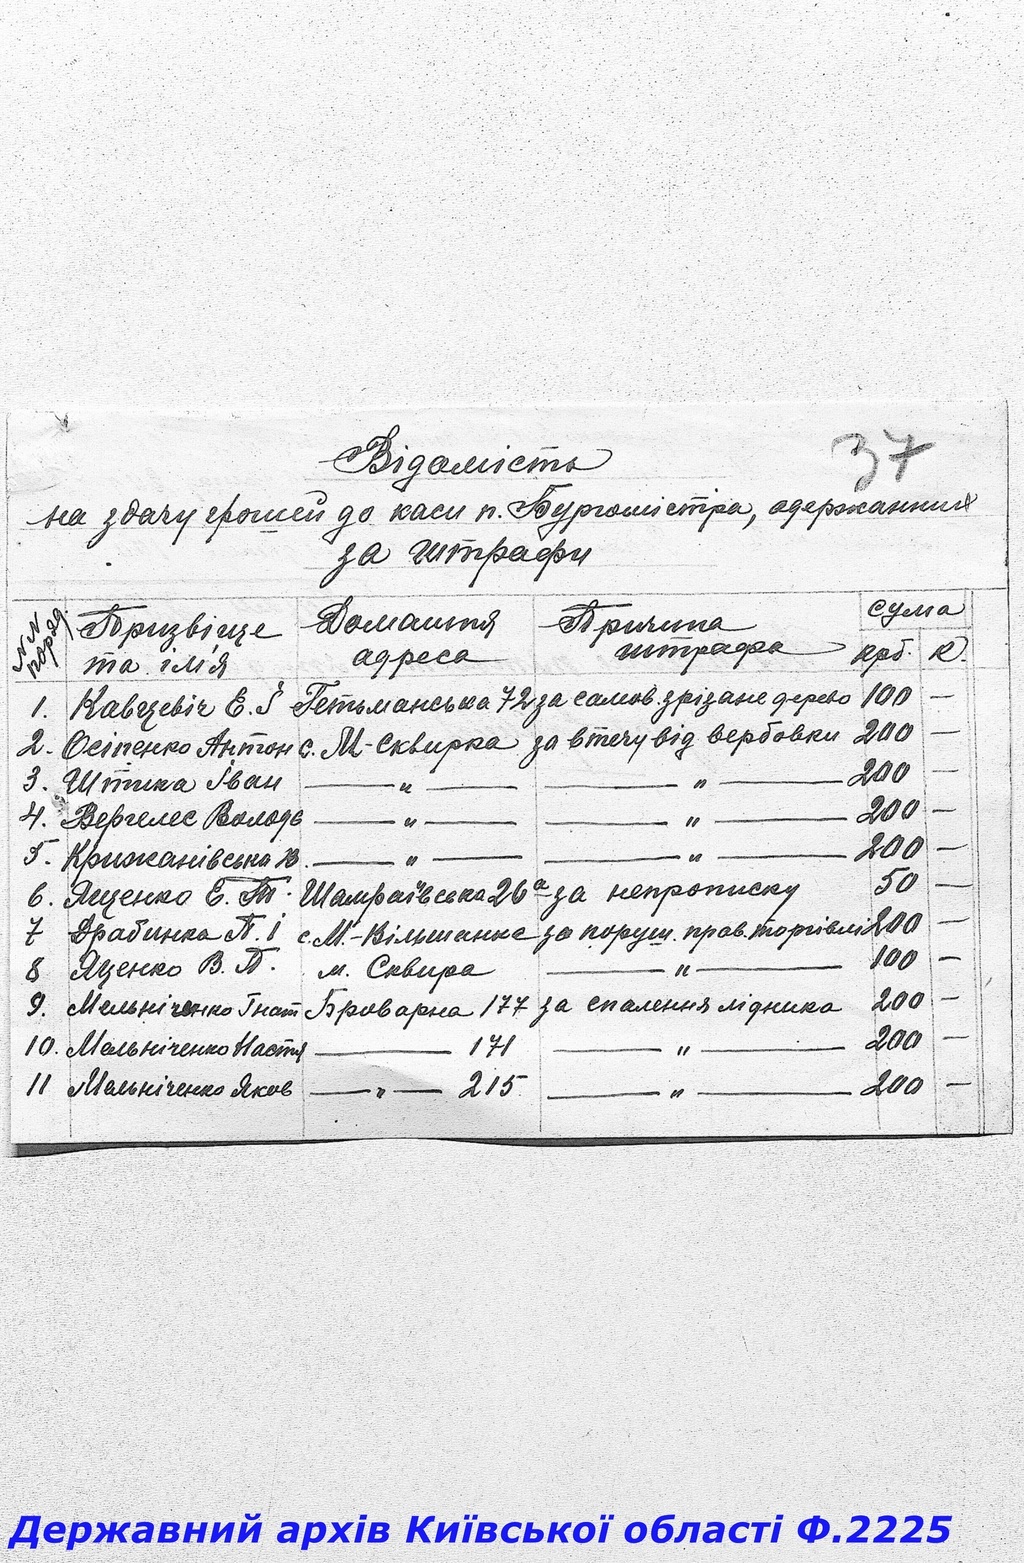 37
Відомість
на здачу грошей до каси п. Бургомістра, одержанних
за штрафи
NN поряд. Призвіще та ім'я Домашня адреса Причина штрафа сума крб. к.
1. Кавцевіч Е. І Гетьманська 72 за самов. зрізане дерево 100 —
2. Осіпенко Антон с. М-Сквирка за втечу від вербовки 200 —
3. Штика Іван — „ — — „ — 200 —
4. Вергелес Володь — „ — — „ — 200 —
5. Крижанівська В. — „ — — „ — 200 —
6. Яценко Е. Т. Шамраївська 26а за непрописку 50 —
7 Драбинка П. І с. М.-Вільшанка за поруш. прав. торгівлі 200 —
8 Яценко В. П. м. Сквира — „ — 100 —
9. Мельніченко Гнат Броварна 177 за спалення лідника 200 —
10. Мельніченко Настя — 171 — „ — 200 —
11 Мельніченко Яков — „ — 215 — „ — 200 —
Державний архів Київської області Ф.2225